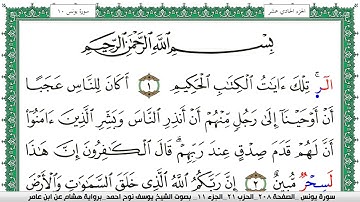 سورة يونس ١٠
الجزء الحادي عشر
بِسْمِ ٱللَّهِ ٱلرَّحْمَٰنِ ٱلرَّحِيمِ
الٓرۚ تِلْكَ ءَايَٰتُ ٱلْكِتَٰبِ ٱلْحَكِيمِ ١ أَكَانَ لِلنَّاسِ عَجَبًا
أَنْ أَوْحَيْنَآ إِلَىٰ رَجُلٍ مِّنْهُمْ أَنْ أَنذِرِ ٱلنَّاسَ وَبَشِّرِ ٱلَّذِينَ ءَامَنُوٓا۟
أَنَّ لَهُمْ قَدَمَ صِدْقٍ عِندَ رَبِّهِمْۗ قَالَ ٱلْكَٰفِرُونَ إِنَّ هَٰذَا
لَسِحْرٌ مُّبِينٌ ٢ إِنَّ رَبَّكُمُ ٱللَّهُ ٱلَّذِى خَلَقَ ٱلسَّمَٰوَٰتِ وَٱلْأَرْضَ
سورة يونس الصفحة ٢٠٨ الحزب ٢١ الجزء ١١ بصوت الشيخ يوسف نوح احمد برواية هشام عن ابن عامر